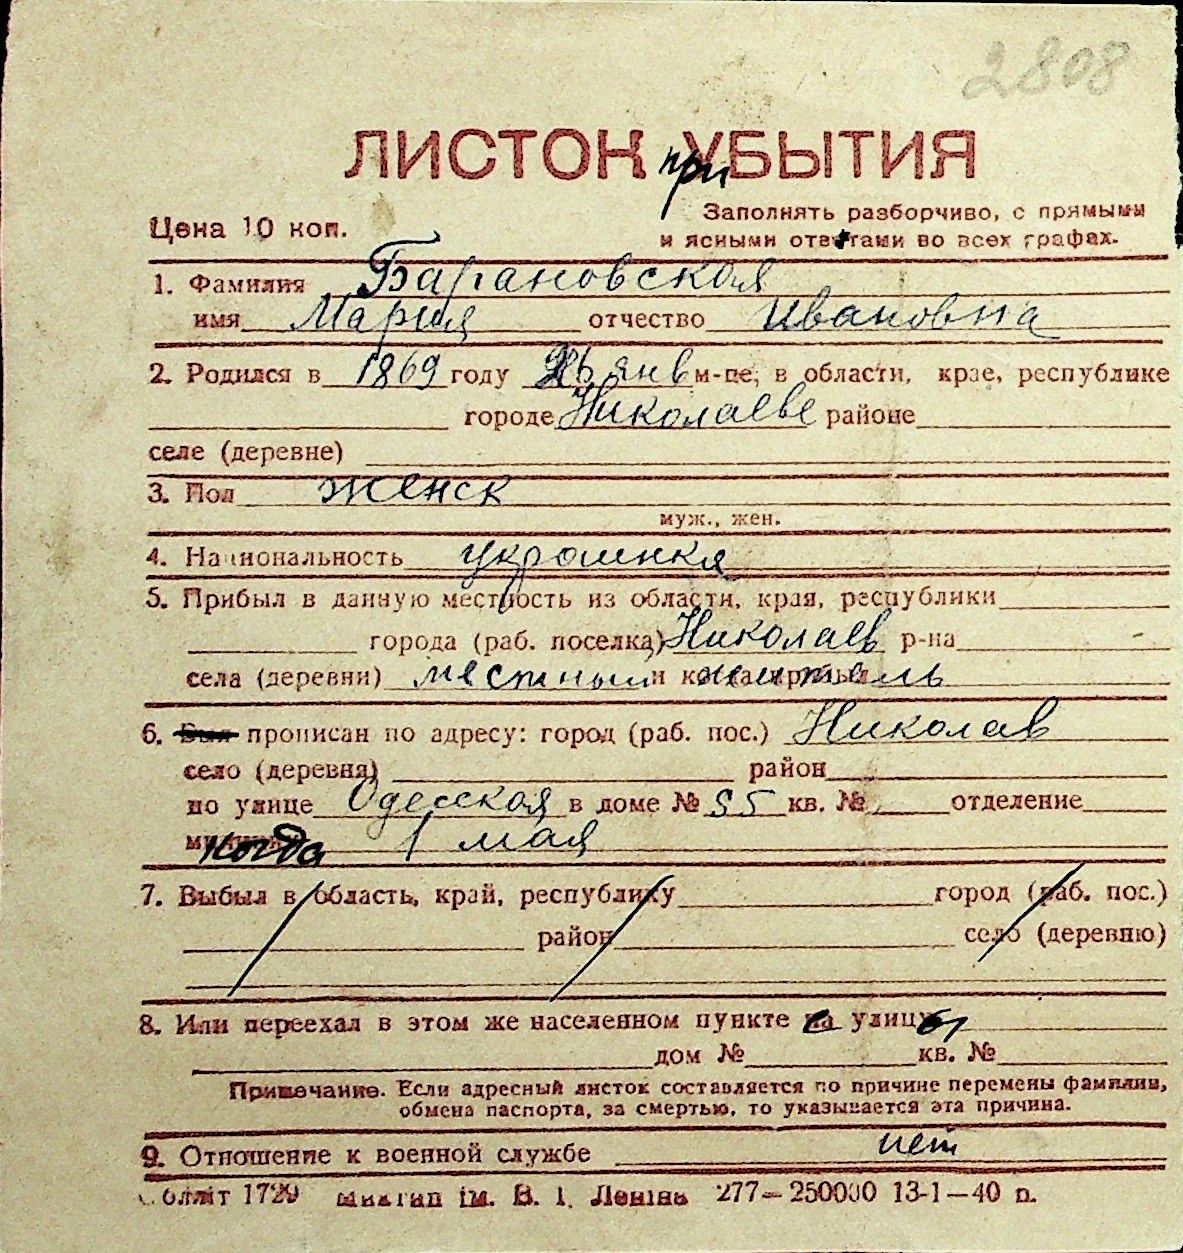 2808
ЛИСТОК при УБЫТИЯ
Цена 10 коп.
Заполнять разборчиво, с прямыми
и ясными ответами во всех графах.
1. Фамилия Барановская
имя Мария отчество Ивановна
2. Родился в 1869 году 26 янв м-це, в области, крае, республике
городе Николаеве районе
селе (деревне)
3. Пол женск
муж., жен.
4. Национальность украинка
5. Прибыл в данную местность из области, края, республики
города (раб. поселка) Николаев р-на
села (деревни) местный житель
6. Был прописан по адресу: город (раб. пос.) Николав
село (деревня) район
по улице Одесская в доме № 55 кв. № отделение
когда 1 мая
7. Выбыл в область, край, республику город (раб. пос.)
район село (деревню)
8. Или переехал в этом же населенном пункте с улицы
дом № кв. №
Примечание. Если адресный листок составляется по причине перемены фамилии,
обмена паспорта, за смертью, то указывается эта причина.
9. Отношение к военной службе нет
Обліт 1729 ім. В. І. Леніна 277—250000 13-1—40 р.